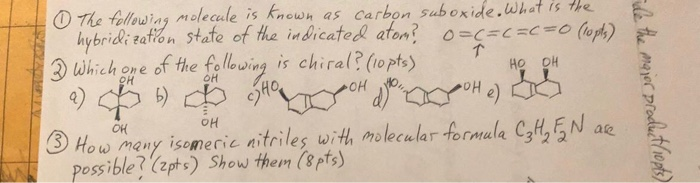 ① The following molecule is known as carbon suboxide. What is the
hybridization state of the indicated atom? O=C=C=C=O (10pts)
② Which one of the following is chiral? (10pts)
a) OH OH b) OH OH c) HO OH d) HO OH e) HO OH
③ How many isomeric nitriles with molecular formula C₃H₂F₂N are
possible? (2pts) Show them (8pts)
the major product (10pts)